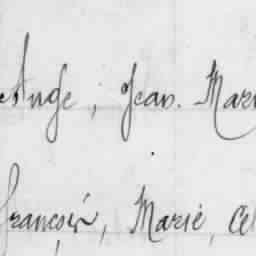 Ange, Jean. Mari
françois, Marie, Cel